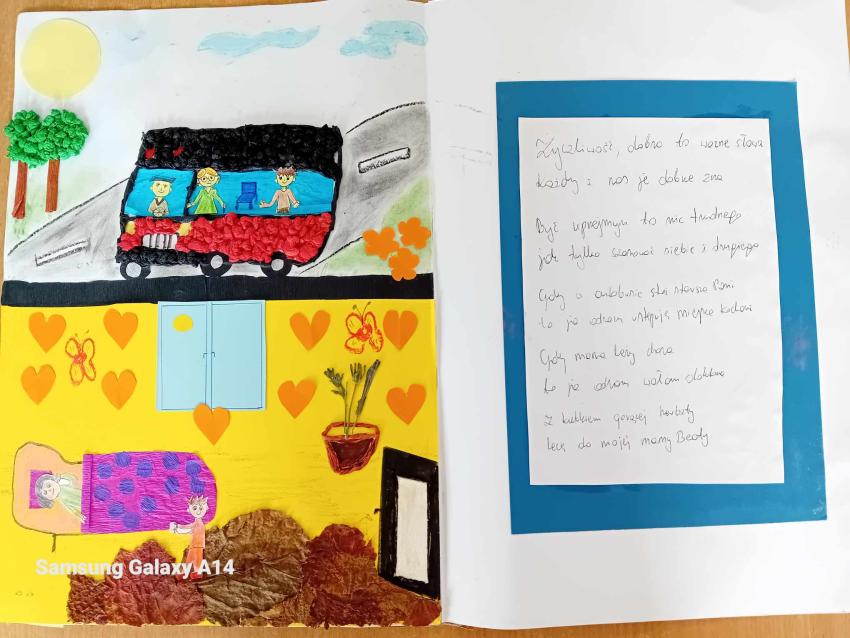 Życzliwość, dobro to ważne słowa
każdy z nas je dobrze zna
Być uprzejmym to nic trudnego
jak tylko szanować siebie i drugiego
Gdy w autobusie stoi starsza Pani
to ja odrazu ustępuję miejsce
Gdy mama leży chora
to ja odrazu wołam doktora
Z kubkiem gorącej herbaty
lecę do mojej mamy Beaty
Samsung Galaxy A14